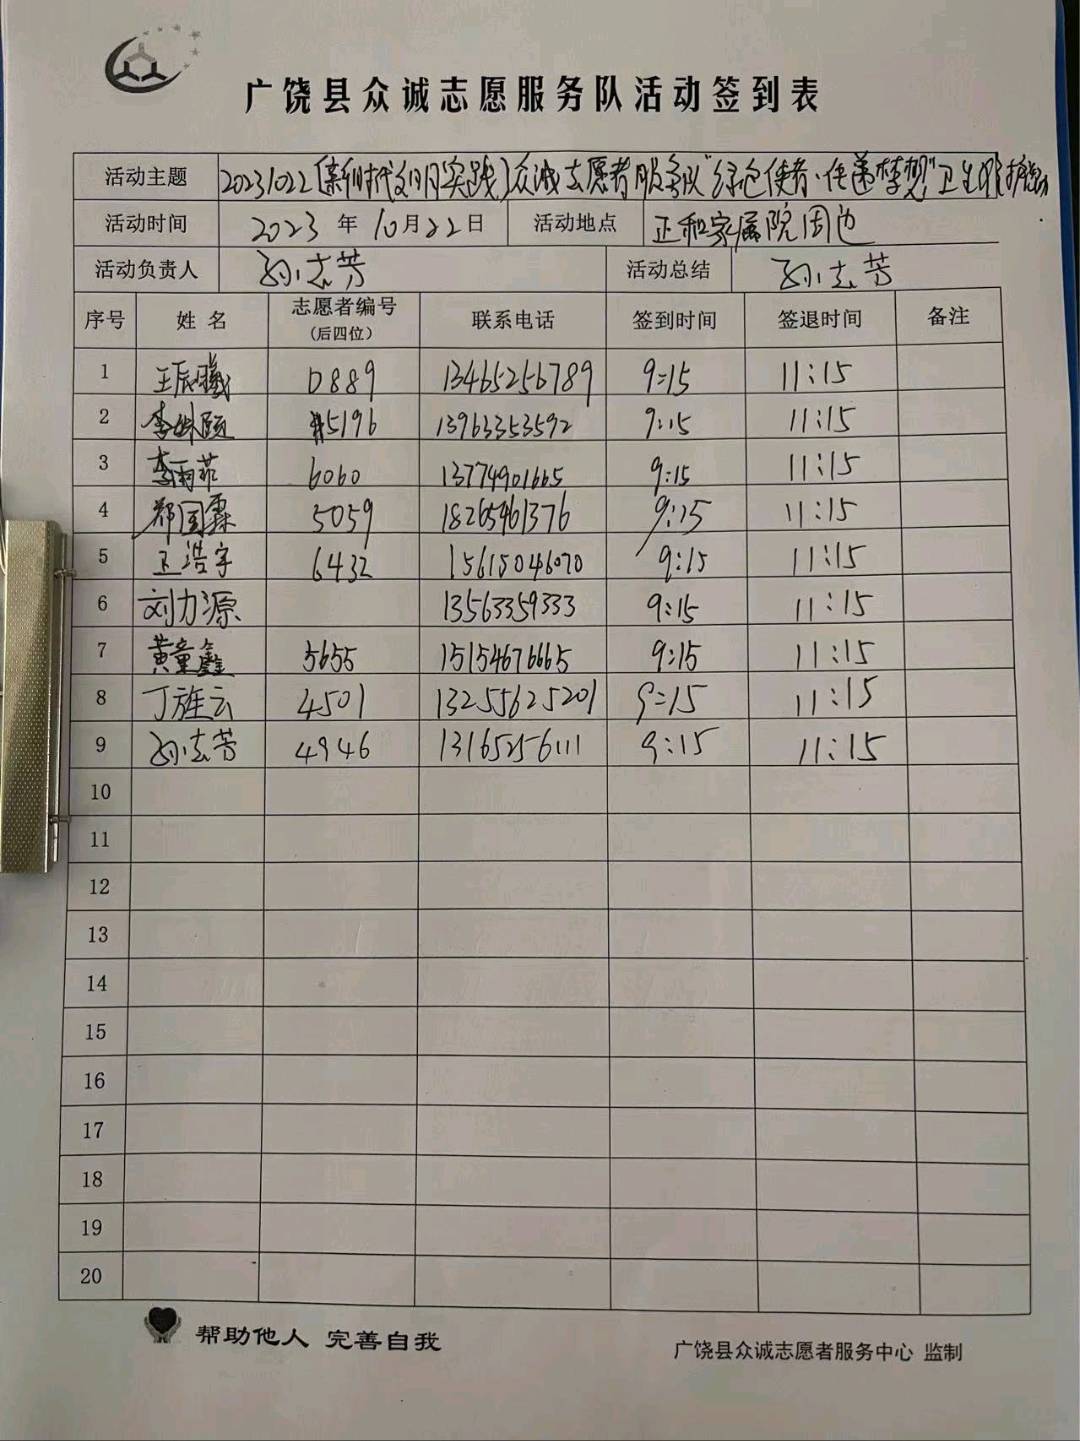 广饶县众诚志愿服务队活动签到表
活动主题 20231022【新时代文明实践】众诚志愿者服务队“绿色使者·传递梦想”卫生维护活动
活动时间 2023 年 10 月 22 日 活动地点 正和家属院周边
活动负责人 孙志芳 活动总结 孙志芳
序号 姓 名 志愿者编号 联系电话 签到时间 签退时间 备注
(后四位)
1 王辰曦 0889 13465256789 9:15 11:15
2 李姝颐 5196 13963353592 9:15 11:15
3 李雨菲 6060 13774901665 9:15 11:15
4 郑国霖 5059 18265961376 9:15 11:15
5 卫浩宇 6432 15615046070 9:15 11:15
6 刘力源 13563359333 9:15 11:15
7 黄童鑫 5655 15154676665 9:15 11:15
8 丁旌云 4501 13255625201 9:15 11:15
9 孙志芳 4946 13165256111 9:15 11:15
10
11
12
13
14
15
16
17
18
19
20
帮助他人 完善自我
广饶县众诚志愿者服务中心 监制